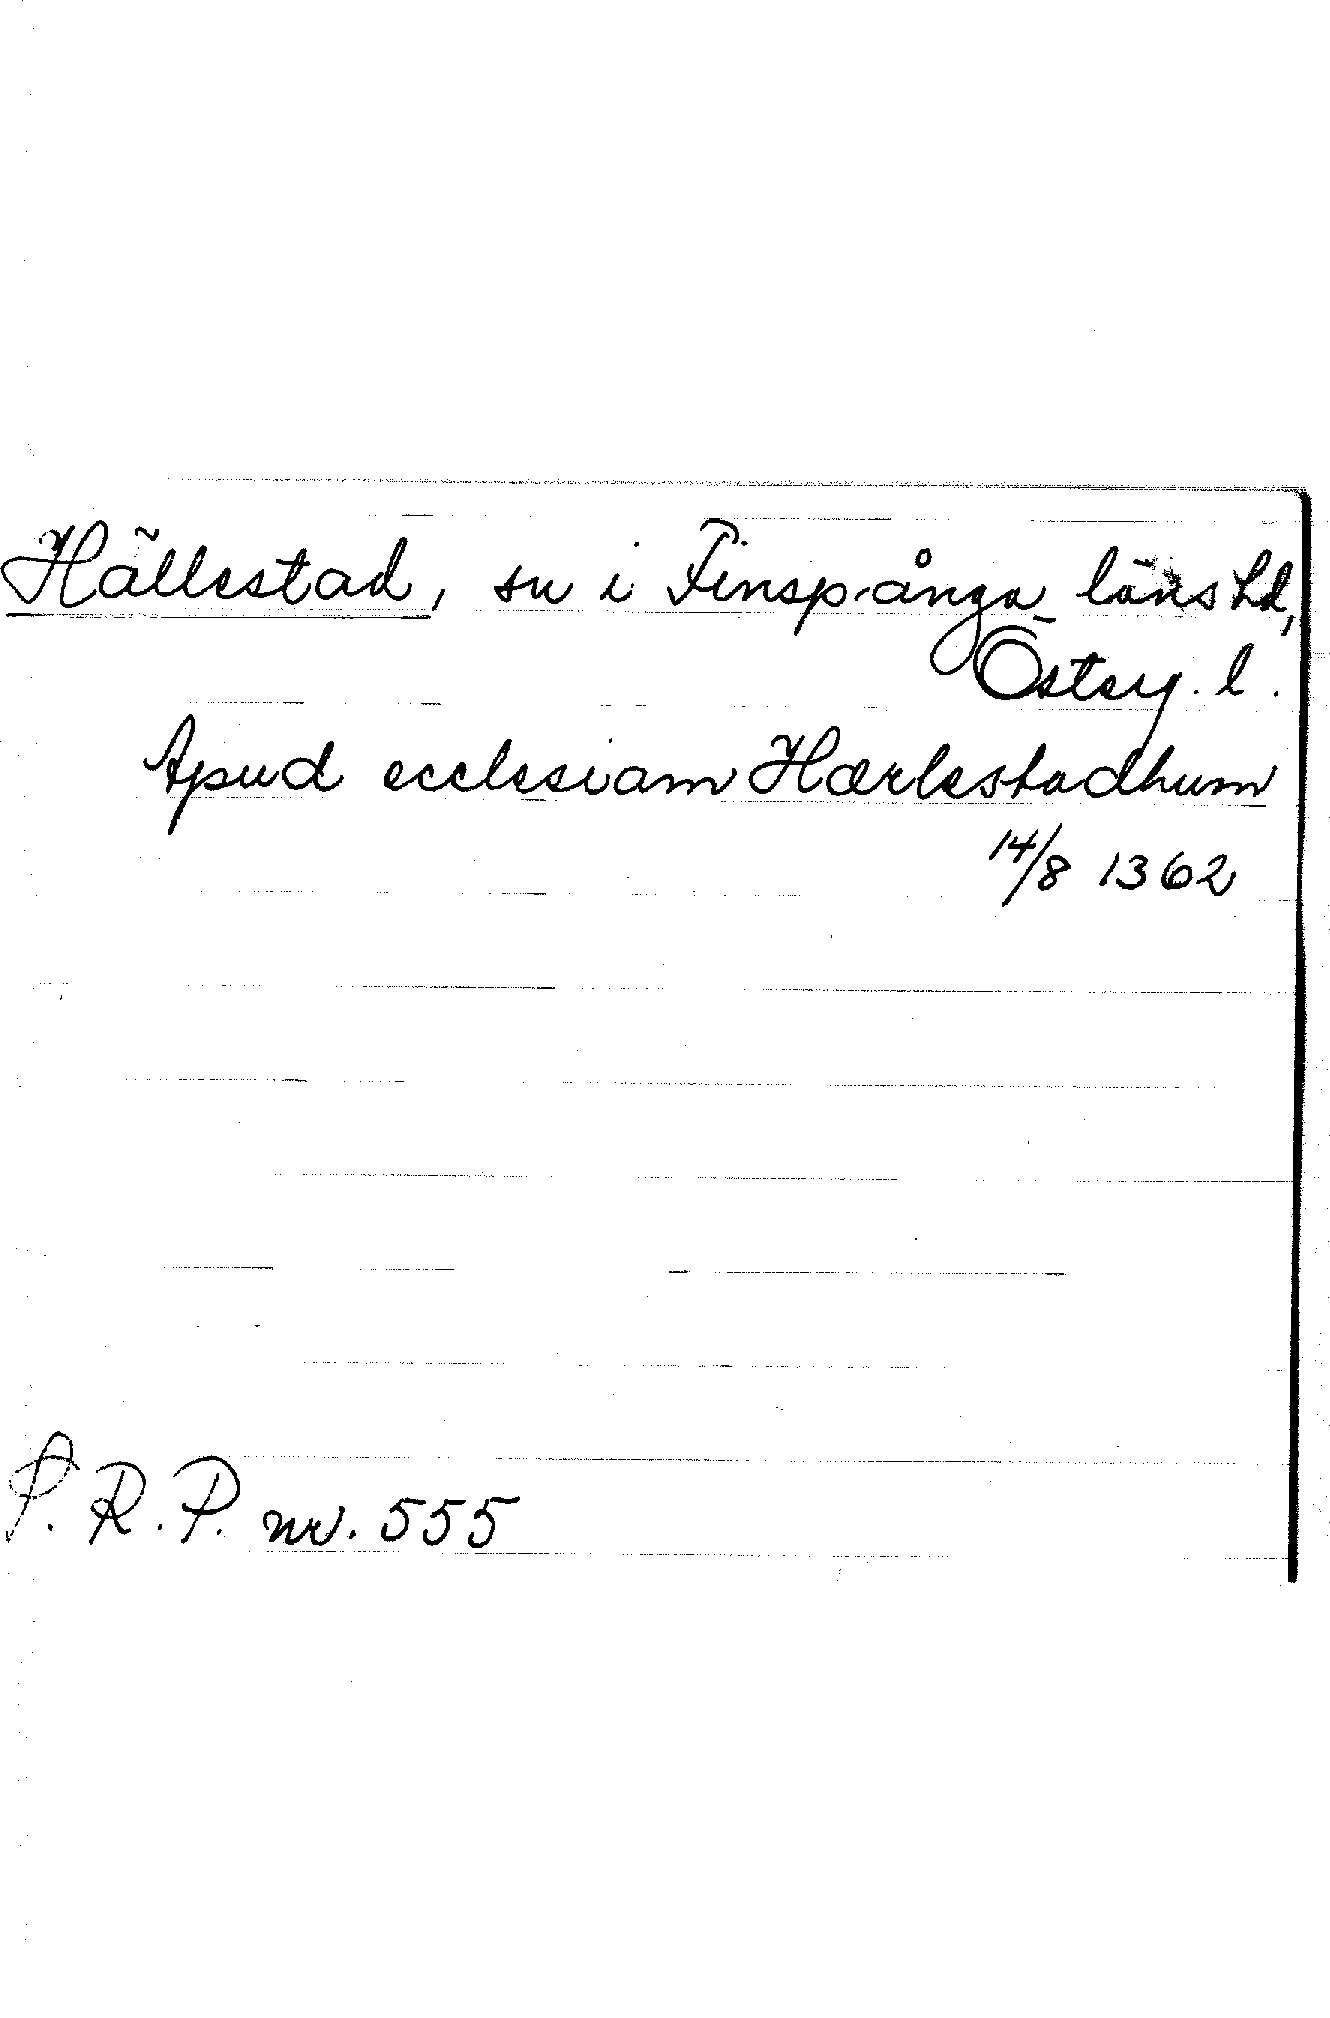 Hällestad, sn i Finspånga läns hd,
Österg. l.
Apud ecclesiam Hærlestadhum
14/8 1362
S. R. P. nr. 555